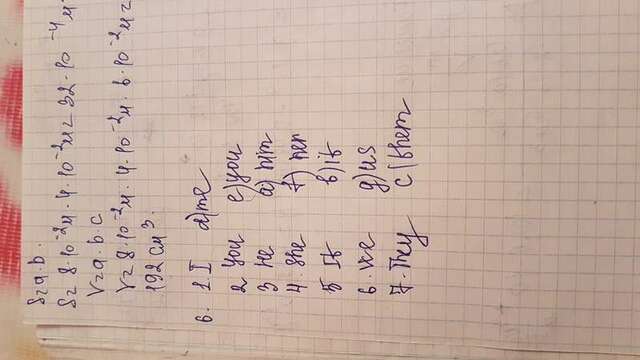 S=a·b.
S=8·10⁻²м·4·10⁻²м=32·10⁻⁴м
V=a·b·c
V=8·10⁻²м·4·10⁻²м·6·10⁻²м=
192 см³.
6. 1. I d) me
2 you e) you
3 He a) him
4. She f) her
5 It b) it
6. we g) us
7. They c) them